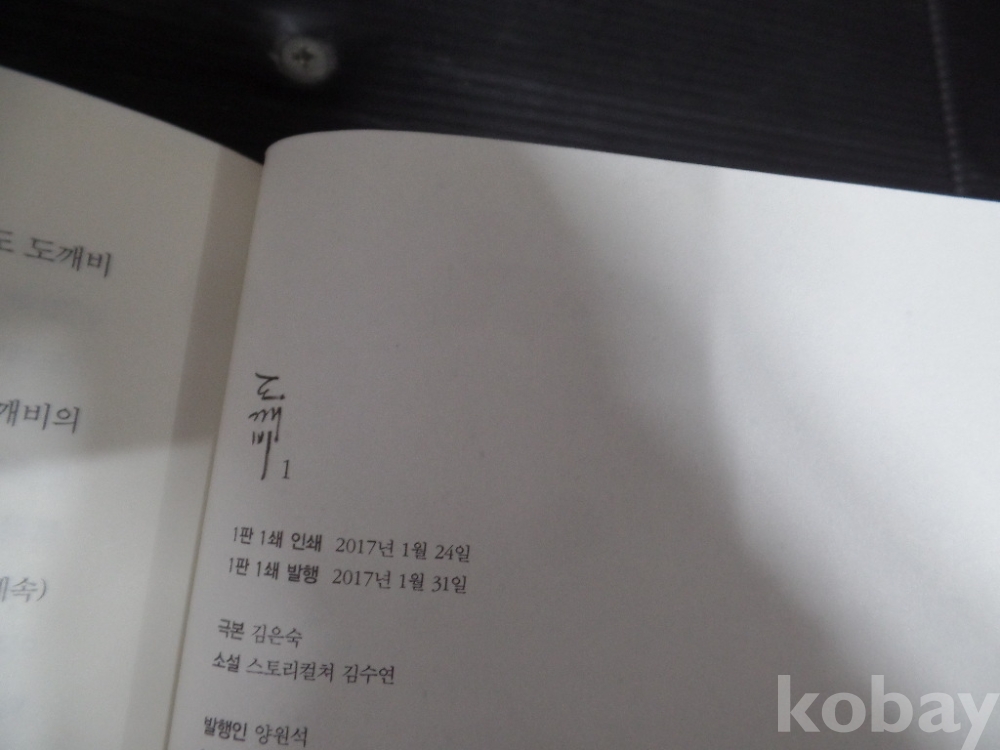 도 도깨비
깨비의
속)
도깨비 1
1판 1쇄 인쇄 2017년 1월 24일
1판 1쇄 발행 2017년 1월 31일
극본 김은숙
소설 스토리컬쳐 김수연
발행인 양원석
kobay